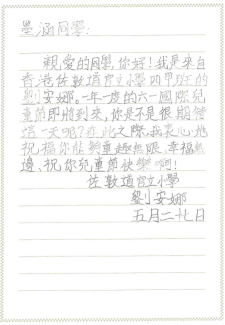 墨涵同學:
親愛的同學,你好!我是來自
香港佐敦道官立小學四甲班的
劉安娜。一年一度的六一國際兒
童節即將到來,你是不是很期待
這一天呢?在此之際,我衷心地
祝福你能夠童趣無限、幸福無
邊、祝你兒童節快樂啊!
佐敦道官立小學
劉安娜
五月二十七日